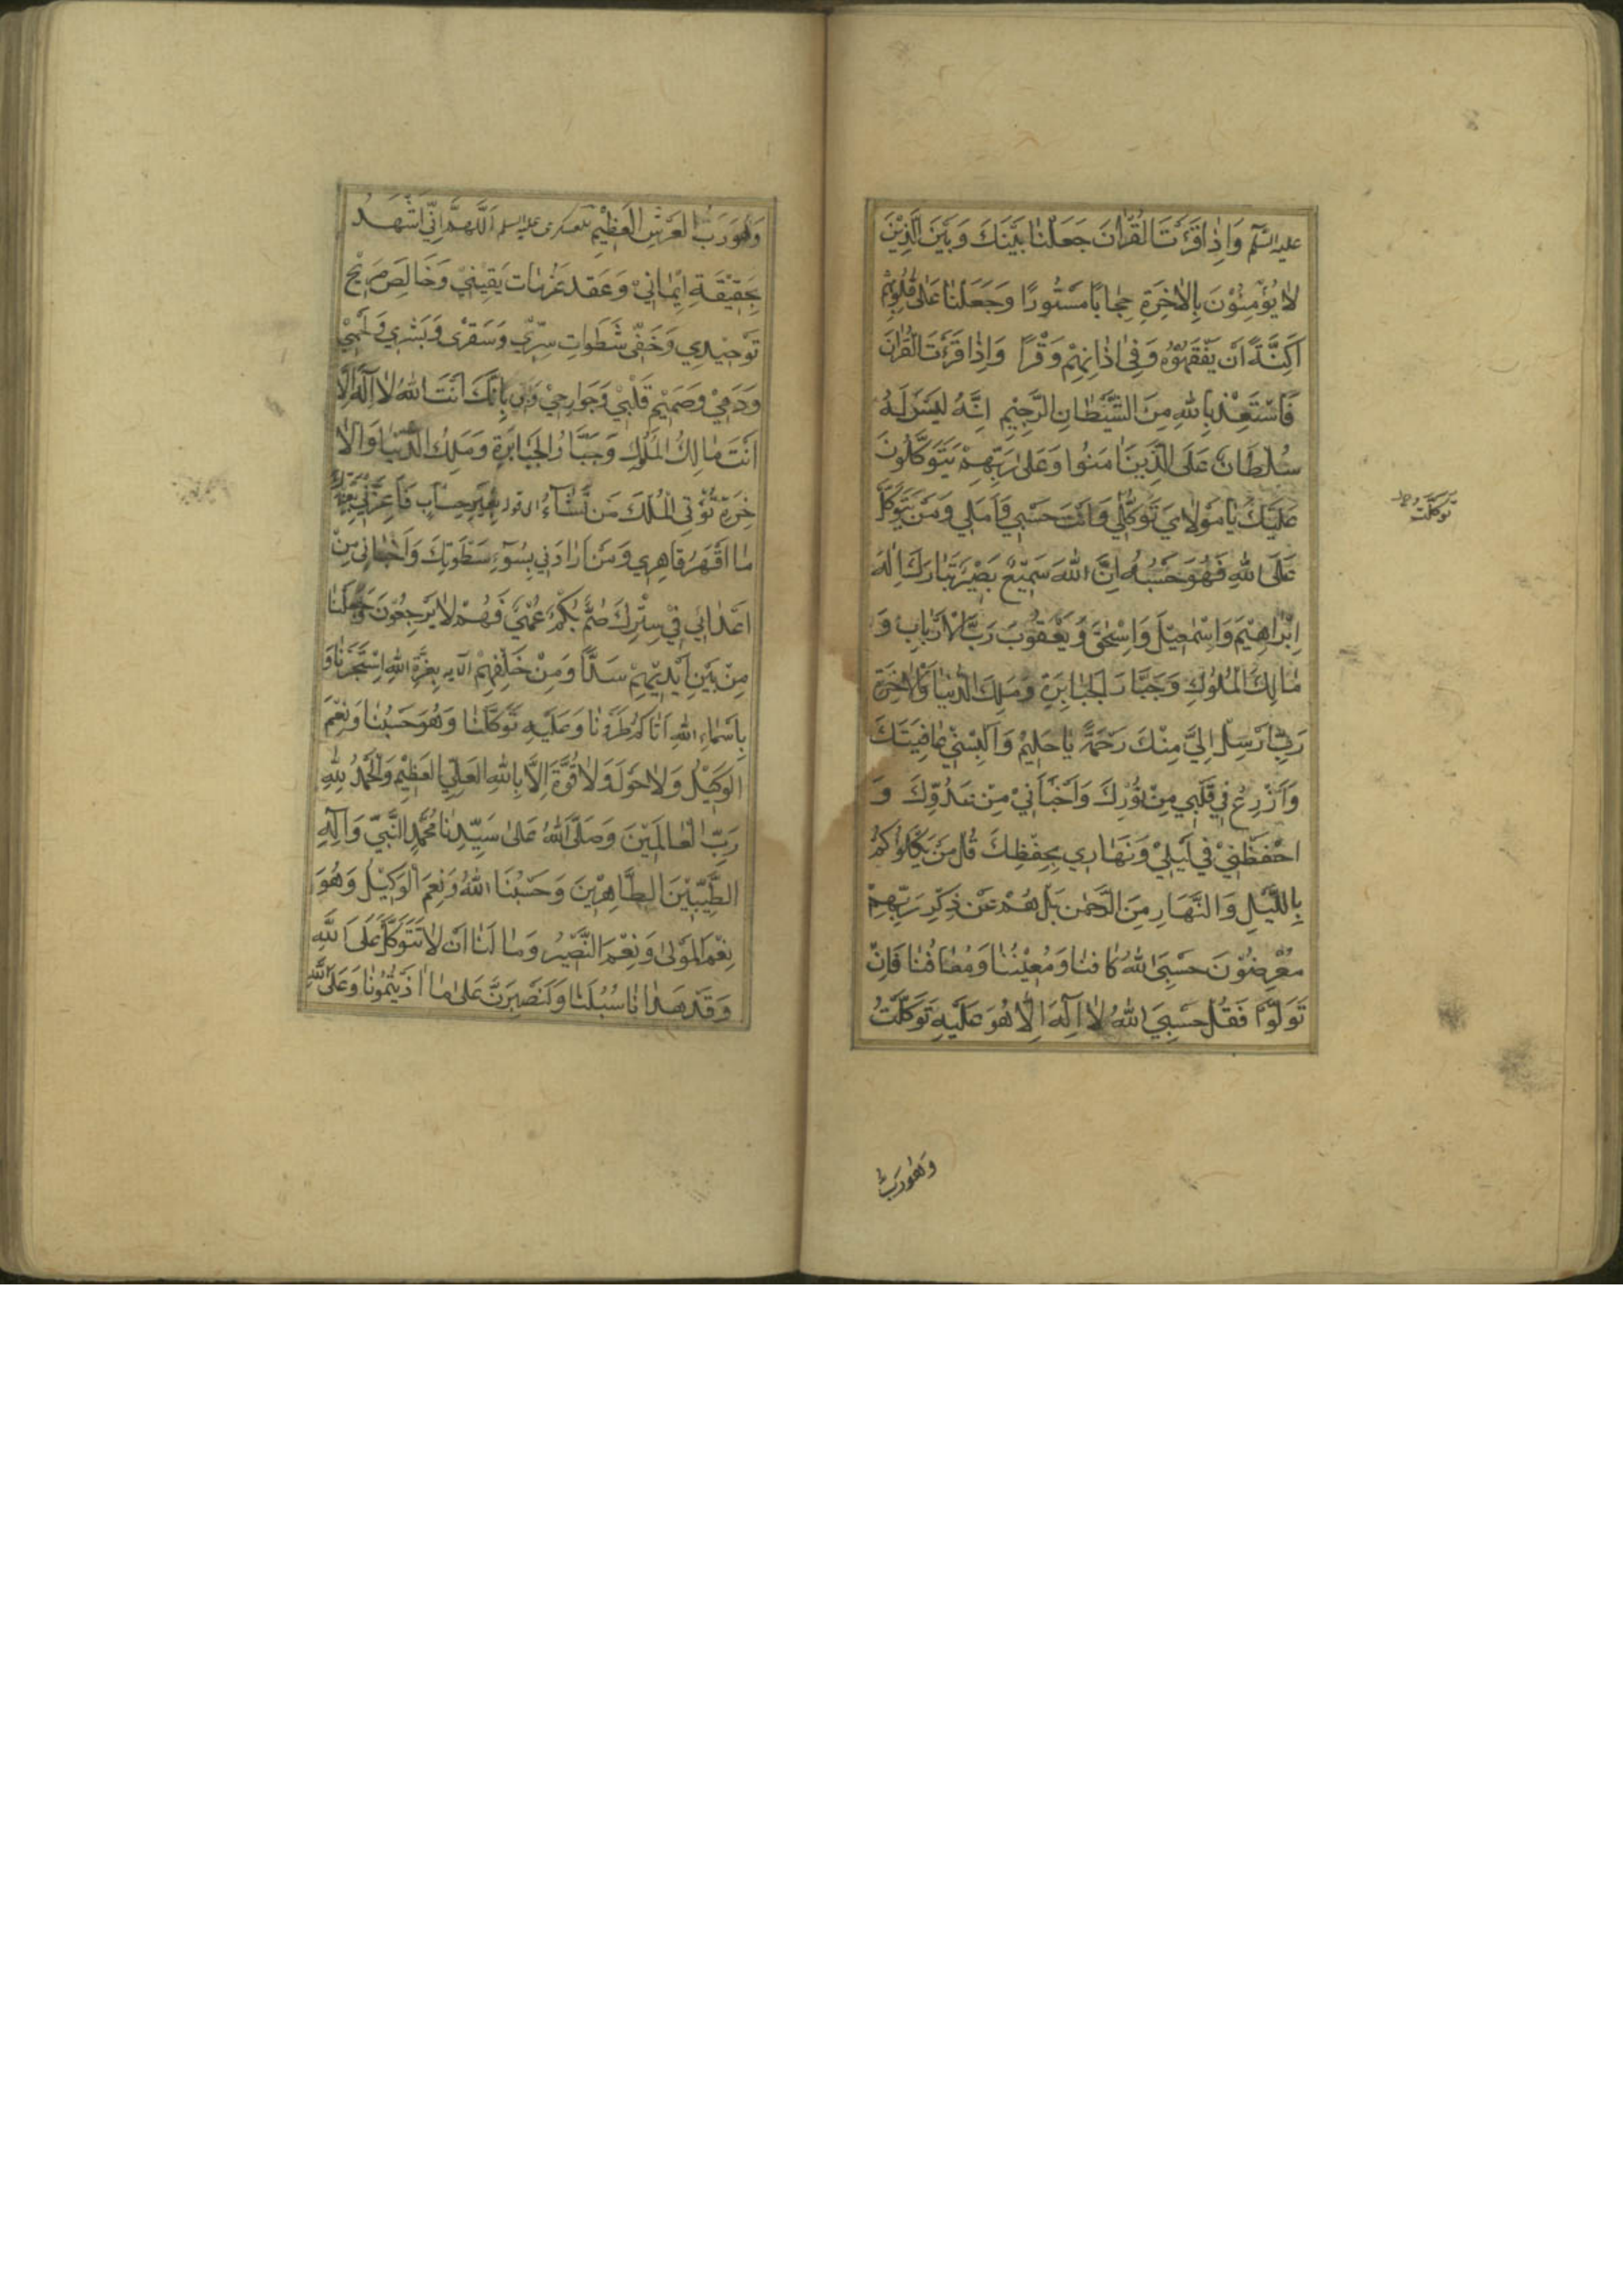 عليه السّلم وَاِذٰا قَرَءْتَ الْقُرْاٰنَ جَعَلْنٰا بَيْنَكَ وَبَيْنَ الَّذِيْنَ
لٰا يُؤْمِنُوْنَ بِالْاٰخِرَةِ حِجٰابًا مَسْتُورًا وَجَعَلْنٰا عَلٰى قُلُوبِهِمْ
اَكِنَّةً اَنْ يَفْقَهُوْهُ وَفِىْ اٰذٰانِهِمْ وَقْرًا وَاِذٰا قَرَءْتَ الْقُرْاٰنَ
فَاسْتَعِذْ بِاللّٰهِ مِنَ الشَّيْطٰانِ الرَّجِيْمِ اِنَّهُ لَيْسَ لَهُ
سُلْطٰانٌ عَلَى الَّذِيْنَ اٰمَنُوا وَعَلٰى رَبِّهِمْ يَتَوَكَّلُونَ
عَلَيْكَ يٰا مَوْلٰايَ تَوَكُّلِي وَاَنْتَ حَسْبِي وَاَمَلِي وَمَنْ يَتَوَكَّلْ
عَلَى اللّٰهِ فَهُوَ حَسْبُهُ اِنَّ اللّٰهَ سَمِيْعٌ بَصِيْرٌ تَبٰارَكَ اِلٰهُ
اِبْرٰاهِيْمَ وَاِسْمٰعِيْلَ وَاِسْحٰقَ وَيَعْقُوْبَ رَبُّ الْاَرْبٰابِ وَ
مٰالِكَ الْمُلُوْكِ وَجَبَّارَ الْجَبٰابِرَةِ وَمَلِكَ الدُّنْيٰا وَالْاٰخِرَةِ
رَبِّ اَرْسِلْ اِلَيَّ مِنْكَ رَحْمَةً يٰا حَلِيْمُ وَاَلْبِسْنِي عٰافِيَتَكَ
وَاَزْرِعْ فِي قَلْبِي مِنْ نُوْرِكَ وَاَخْبَأْنِيْ مِنْ عَدُوِّكَ وَ
احْفَظْنِيْ فِي لَيْلِيْ وَنَهٰارِي بِحِفْظِكَ قُلْ مَنْ يَكْلَؤُكُمْ
بِاللَّيْلِ وَالنَّهٰارِ مِنَ الرَّحْمٰنِ بَلْ هُمْ عَنْ ذِكْرِ رَبِّهِمْ
مُعْرِضُوْنَ حَسْبِيَ اللّٰهُ كٰافِنٰا وَمُعِيْنُنٰا وَمُعٰافُنٰا فَاِنْ
تَوَلَّوْا فَقُلْ حَسْبِيَ اللّٰهُ لٰا اِلٰهَ اِلّٰا هُوَ عَلَيْهِ تَوَكَّلْتُ
تَوَكَّلْتُ
وَهُوَ رَبُّ
وَهُوَ رَبُّ الْعَرْشِ الْعَظِيْمِ للعسكرى عليه السلم اَللّٰهُمَّ اِنِّي اَشْهَدُ
بِحَقِيْقَةِ اِيْمٰانِيْ وَعَقْدِ عَزَمٰاتِ يَقِيْنِيْ وَخٰالِصِ صَرِيْحِ
تَوْحِيْدِي وَخَفِيِّ سَطَوٰاتِ سِرِّي وَشَعْرِى وَبَشَرِي وَلَحْمِيْ
وَدَمِيْ وَصَمِيْمِ قَلْبِيْ وَجَوٰارِحِيْ بِاَنَّكَ اَنْتَ اللّٰهُ لٰا اِلٰهَ اِلّٰا
اَنْتَ مٰالِكُ الْمُلُوْكِ وَجَبَّارُ الْجَبٰابِرَةِ وَمَلِكُ الدُّنْيٰا وَالْاٰ
خِرَةِ تُؤْتِى الْمُلْكَ مَنْ تَشٰآءُ الى قوله بِغَيْرِ حِسٰابٍ فَاَعِزَّنِي بِعِزِّكَ
مٰا اَقْهَرَ قٰاهِرِي وَمَنْ اَرٰادَنِي بِسُوْءٍ بِسَطْوَتِكَ وَاخْبَأْنِي مِنْ
اَعْدٰائِي فِيْ سِتْرِكَ صُمٌّ بُكْمٌ عُمْيٌ فَهُمْ لٰا يَرْجِعُوْنَ وَجَعَلْنٰا
مِنْ بَيْنِ اَيْدِيْهِمْ سَدًّا وَمِنْ خَلْفِهِمْ الآيه بِعِزَّةِ اللّٰهِ اسْتَجَرْنٰا وَ
بِاَسْمٰاءِ اللّٰهِ اِيّٰاكُمْ طَرَدْنٰا وَعَلَيْهِ تَوَكَّلْنٰا وَهُوَ حَسْبُنٰا وَنِعْمَ
الْوَكِيْلُ وَلٰا حَوْلَ وَلٰا قُوَّةَ اِلَّا بِاللّٰهِ الْعَلِيِّ الْعَظِيْمِ وَالْحَمْدُ لِلّٰهِ
رَبِّ الْعٰالَمِيْنَ وَصَلَّى اللّٰهُ عَلٰى سَيِّدِنٰا مُحَمَّدٍ النَّبِيِّ وَاٰلِهِ
الطَّيِّبِيْنَ الطَّاهِرِيْنَ وَحَسْبُنَا اللّٰهُ وَنِعْمَ الْوَكِيْلُ وَهُوَ
نِعْمَ الْمَوْلٰى وَنِعْمَ النَّصِيْرُ وَمٰا لَنٰا اَنْ لٰا نَتَوَكَّلَ عَلَى اللّٰهِ
وَقَدْ هَدٰانٰا سُبُلَنٰا وَلَنَصْبِرَنَّ عَلٰى مٰا اٰذَيْتُمُوْنٰا وَعَلَى اللّٰهِ